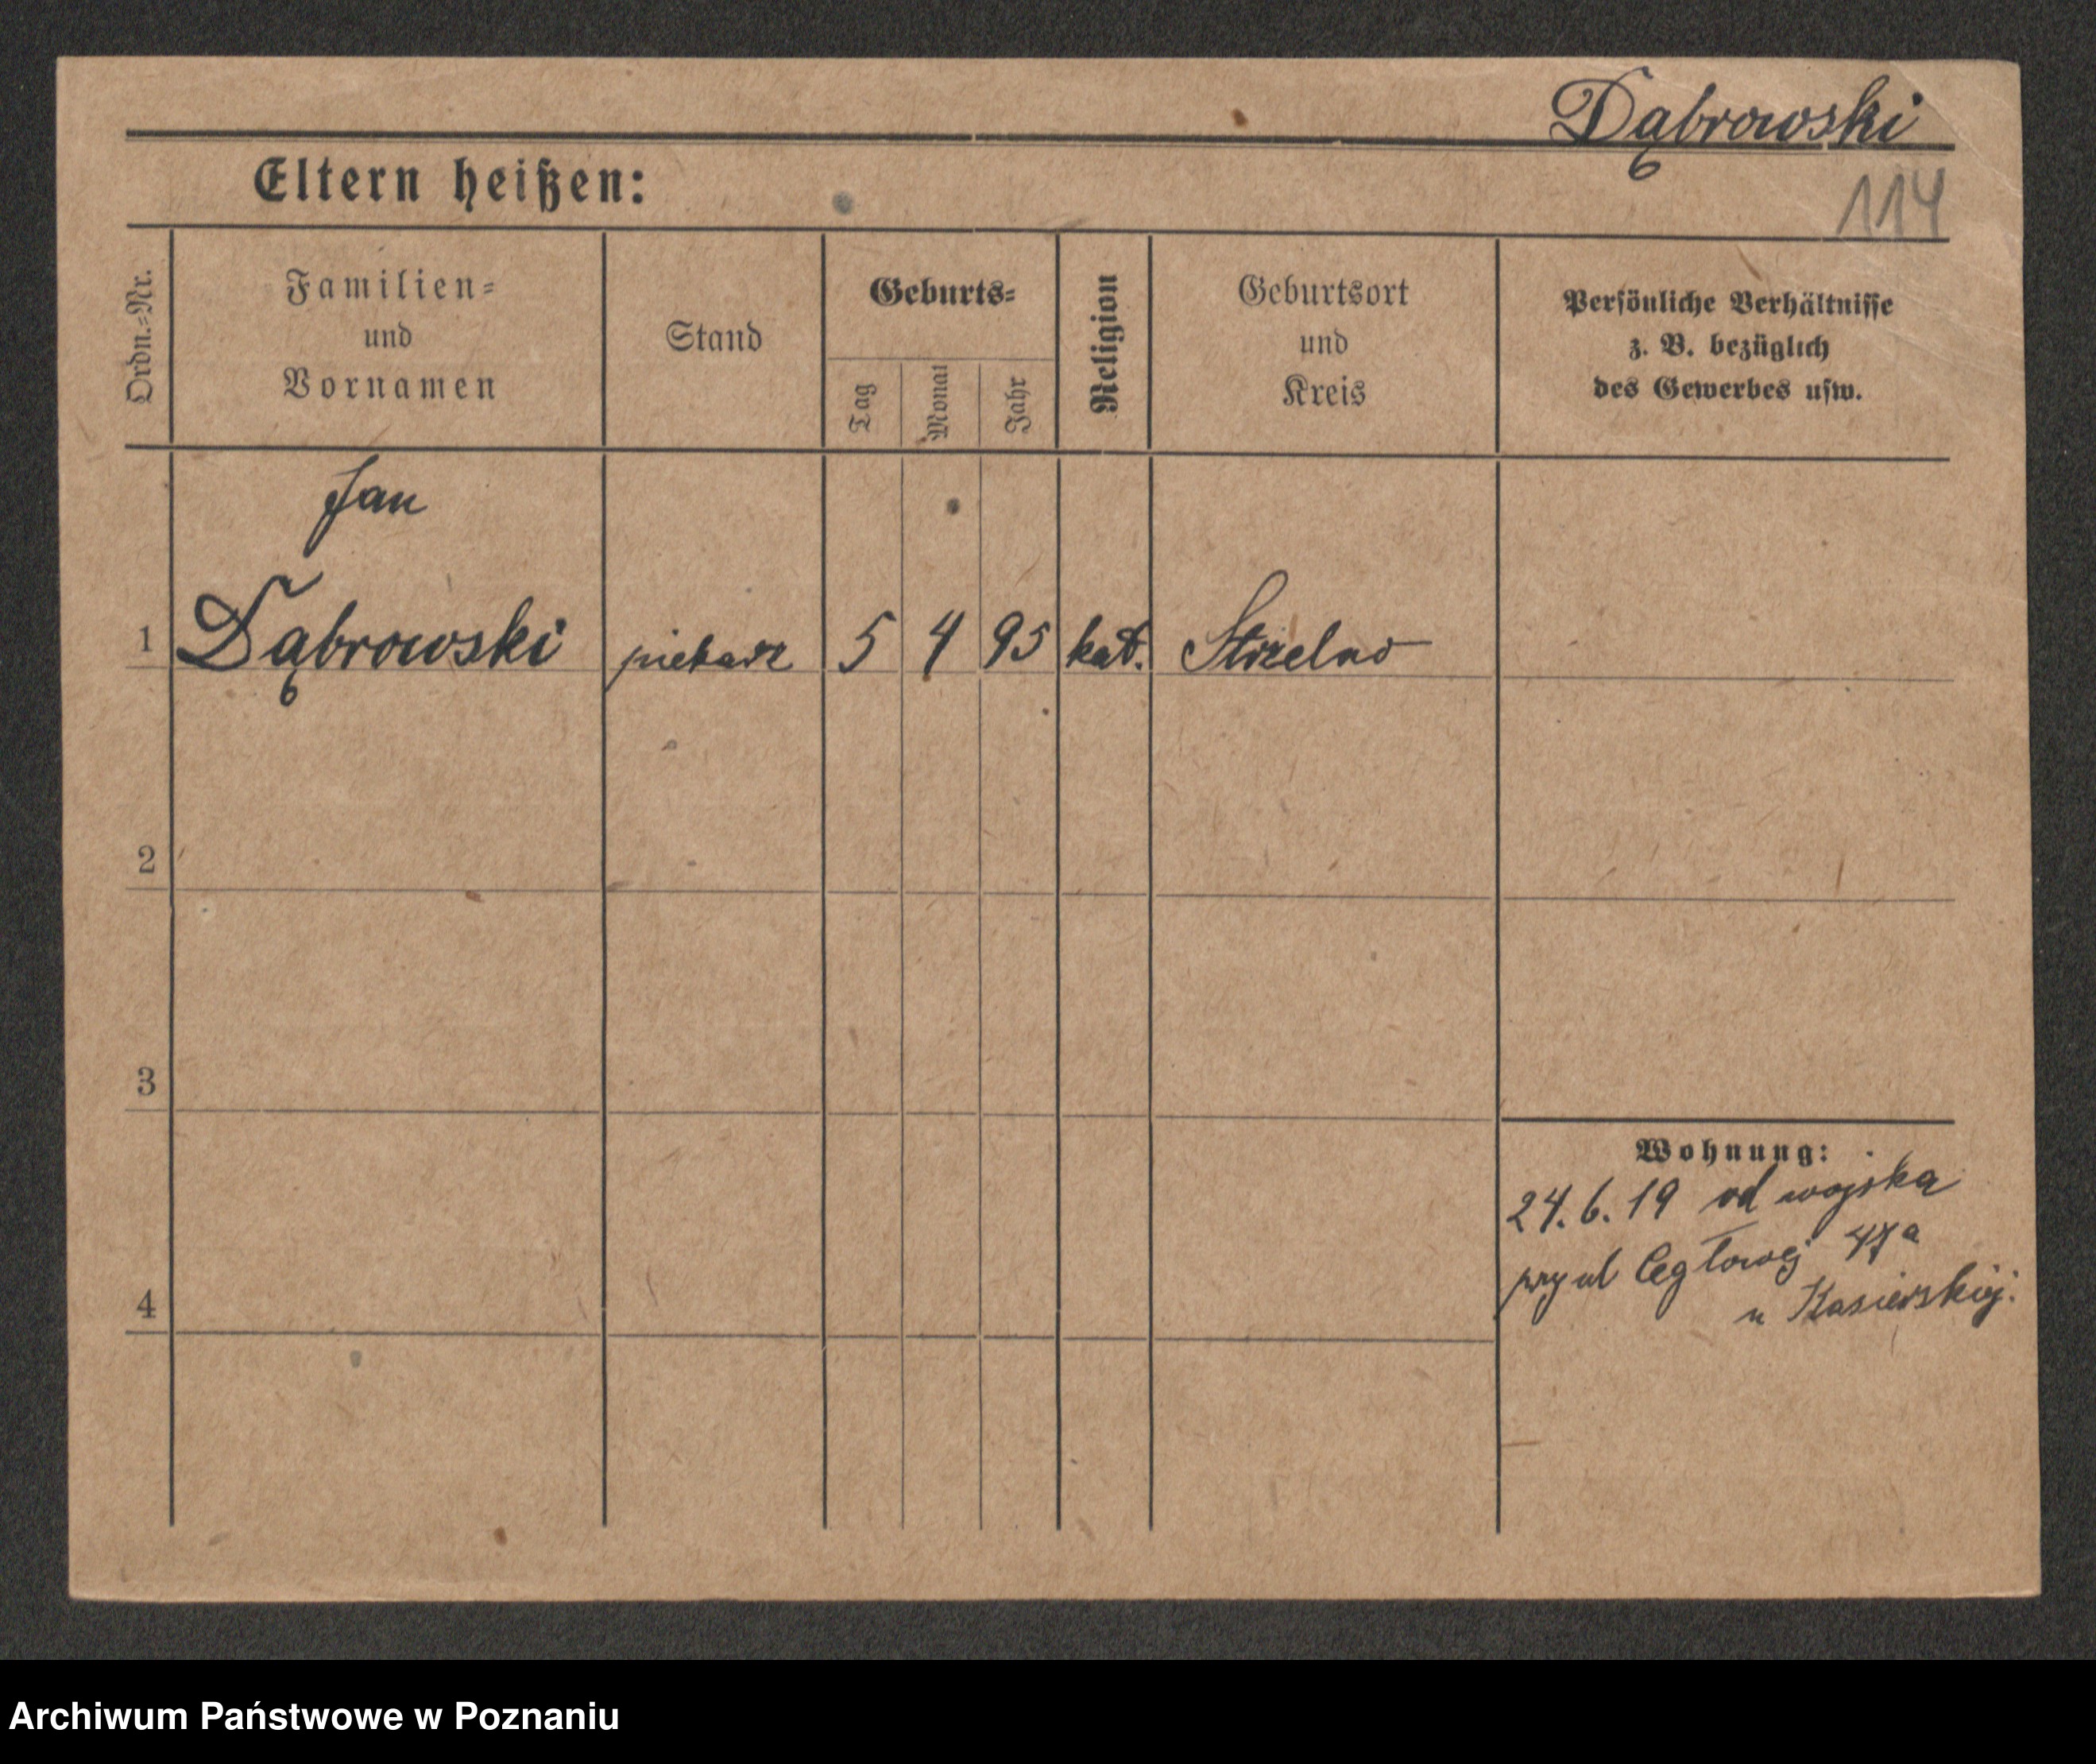 Dąbrowski
Eltern heißen:
114
Ordn.-Nr.
Familien-
und
Vornamen
Stand
Geburts-
Tag
Monat
Jahr
Religion
Geburtsort
und
Kreis
Persönliche Verhältnisse
z. B. bezüglich
des Gewerbes usw.
Jan
1 Dąbrowski piekarz 5 4 95 kat. Strzelno
2
3
Wohnung:
24.6.19 od wojska
przy ul Cegłowej 47a
u Kasierskiej.
4
Archiwum Państwowe w Poznaniu